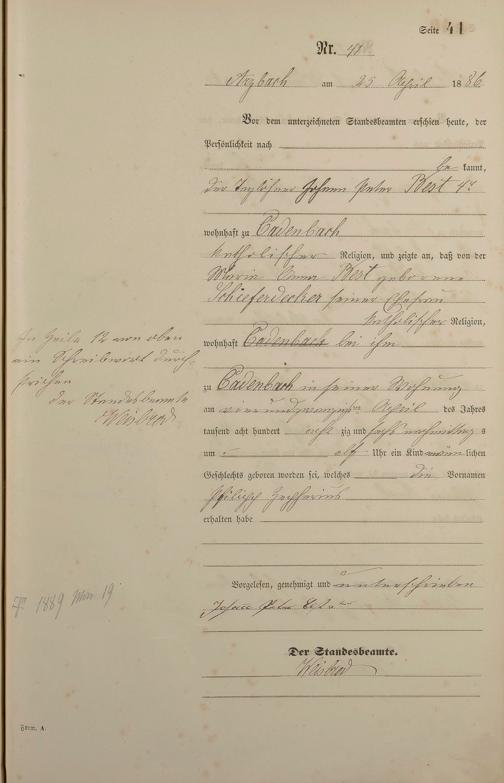 Seite 41
Nr. 41
Arzbach am 25 April 1886
Vor dem unterzeichneten Standesbeamten erschien heute, der
Persönlichkeit nach
be kannt,
der Taglöhner Johann Peter Best 4r
wohnhaft zu Cadenbach
katholischer Religion, und zeigte an, daß von der
Maria Anna Best geborene
Schieferdecker seiner Ehefrau
katholischer Religion,
wohnhaft Cadenbach bei ihm
zu Cadenbach in seiner Wohnung
am vierundzwanzigsten April des Jahres
tausend acht hundert acht zig und sechs nachmittags
um elf Uhr ein Kind männ lichen
Geschlechts geboren worden sei, welches die Vornamen
Philipp
erhalten habe
Vorgelesen, genehmigt und unterschrieben
Johann Peter
Der Standesbeamte.
Weisbrod
In Zeile 12 von oben
ein Schreibwort durch-
strichen
der Standesbeamte
Weisbrod
1889 19
Form. A.